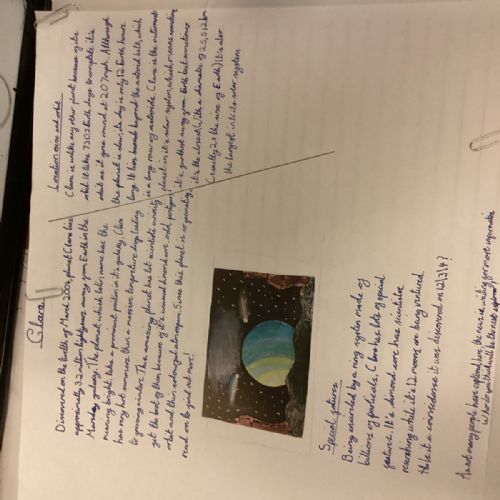 Clara
Discovered on the twelfth of March 2004, planet Clara lies
approximately 3.2 million lightyears away from Earth in the
galaxy. The planet, which latin name has the
meaning bright, has a prominent position in it's galaxy. Clara
has very hot summers then a massive temperature drop leading
to freezing winters. This amazing planet has let scientists curiosity
get the best of them because of it's unusual
orbit and thin, Since this planet is so
read on to find out more!
Location, size and orbit
Clara is unlike any other planet because of its
orbit. It takes 730.5 Earth days to complete it's
orbit as it goes round at 207mph. Although
the planet is slow, its day is only 12 Earth hours
long. It lies beyond the asteroid belt, which
is a long row of asteroids. Clara is the outermost
planet in it's solar system, which means sometimes
it's furthest away from Earth but sometimes
it's the closest. With a diameter of 25,512km
(roughly 2x the size of Earth) it is also
the largest in its solar system
Special features
Being encircled by a ring system made of
billions of particles, Clara has lots of special
features. It's diamond core has scientists
researching while it's 12 moons are being
Is it a coincidence it was discovered on 12/3/14?
As not many people have explored here, the race is on for more information.
Who knows, you that will be the next